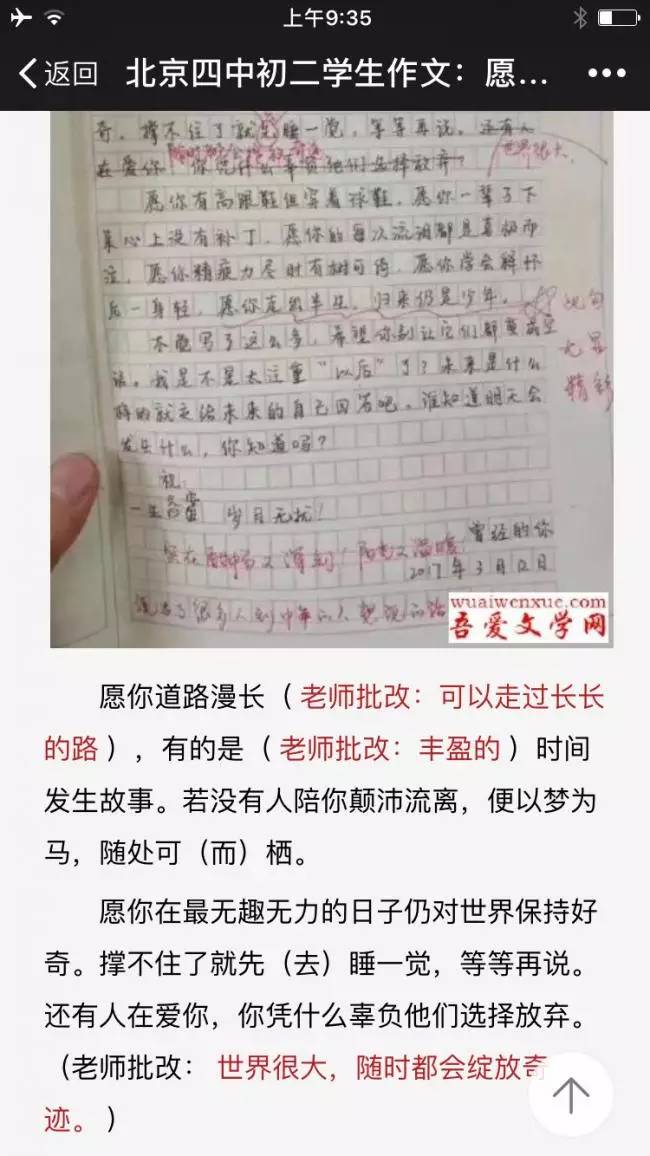 上午9:35
返回 北京四中初二学生作文：愿...
奇。撑不住了就先睡一觉，等等再说。还有人
在爱你 你凭什么辜负他们选择放弃？
世界很大，
愿你有高跟鞋但穿着球鞋，愿你一辈子下
来心上没有补丁，愿你的每次流泪都是喜极而
泣，愿你精疲力尽时有树可倚，愿你学会释怀
后一身轻，愿你走出半生，归来仍是少年。
此句
尤显
精彩
不觉写了这么多，希望你别让它们都变成空
话。我是不是太注重“以后”了？未来是什么
样的就交给未来的自己回答吧，谁知道明天会
发生什么，你知道吗？
祝：
岁月无扰！
曾经的你
2017年3月12日
wuaiwenxue.com
吾爱文学网
愿你道路漫长（老师批改：可以走过长长
的路），有的是（老师批改：丰盈的）时间
发生故事。若没有人陪你颠沛流离，便以梦为
马，随处可（而）栖。
愿你在最无趣无力的日子仍对世界保持好
奇。撑不住了就先（去）睡一觉，等等再说。
还有人在爱你，你凭什么辜负他们选择放弃。
（老师批改： 世界很大，随时都会绽放奇
迹。）